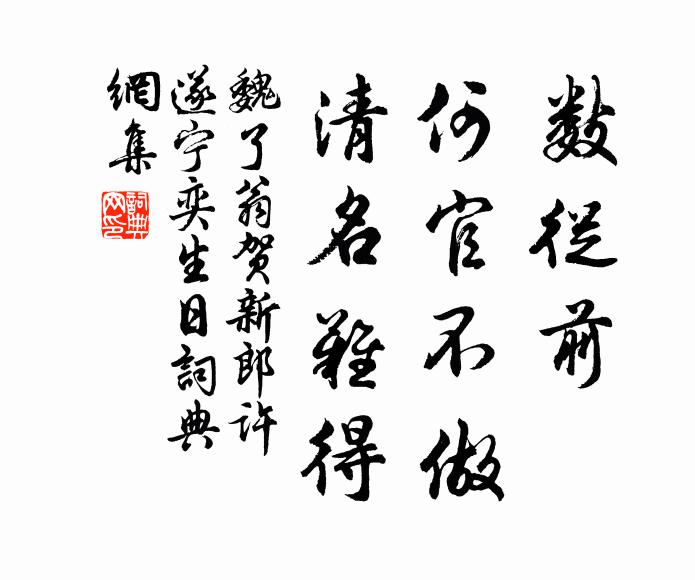 数從前
何官不做
清名難得
魏了翁贺新郎许
遂宁奕生日詞典
網集
詞典网印